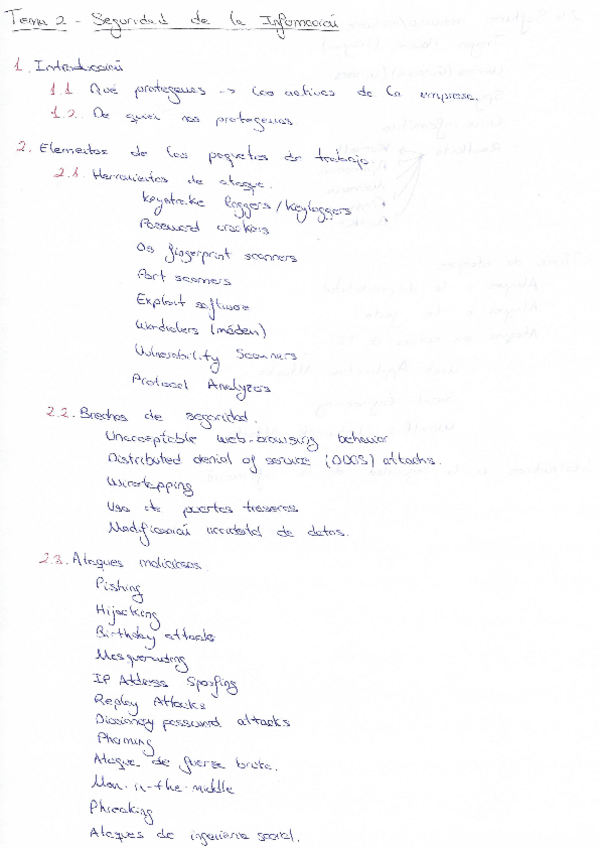 Tema 2 - Seguridad de la Información
1. Introducción
1.1 Qué protegemos -> Los activos de la empresa.
1.2. De quien nos protegemos
2. Elementos de los paquetes de trabajo.
2.1. Herramientas de ataque.
Keystroke loggers / Keyloggers
Password crackers
Os fingerprint scanners
Port scanners
Exploit software
Wardialers (módem)
Vulnerability Scanners
Protocol Analyzers
2.2. Brechas de seguridad.
Unacceptable web-browsing behavior
Distributed denial of service (DDOS) attacks.
Wiretapping
Uso de puertas traseras
Modificación accidental de datos.
2.3. Ataques maliciosos.
Pishing
Hijacking
Birthday attacks
Masquerading
IP Address Spoofing
Replay Attacks
Diccionary password attacks
Pharming
Ataque de fuerza bruta.
Man-in-the-middle
Phreaking
Ataques de ingeniería social.